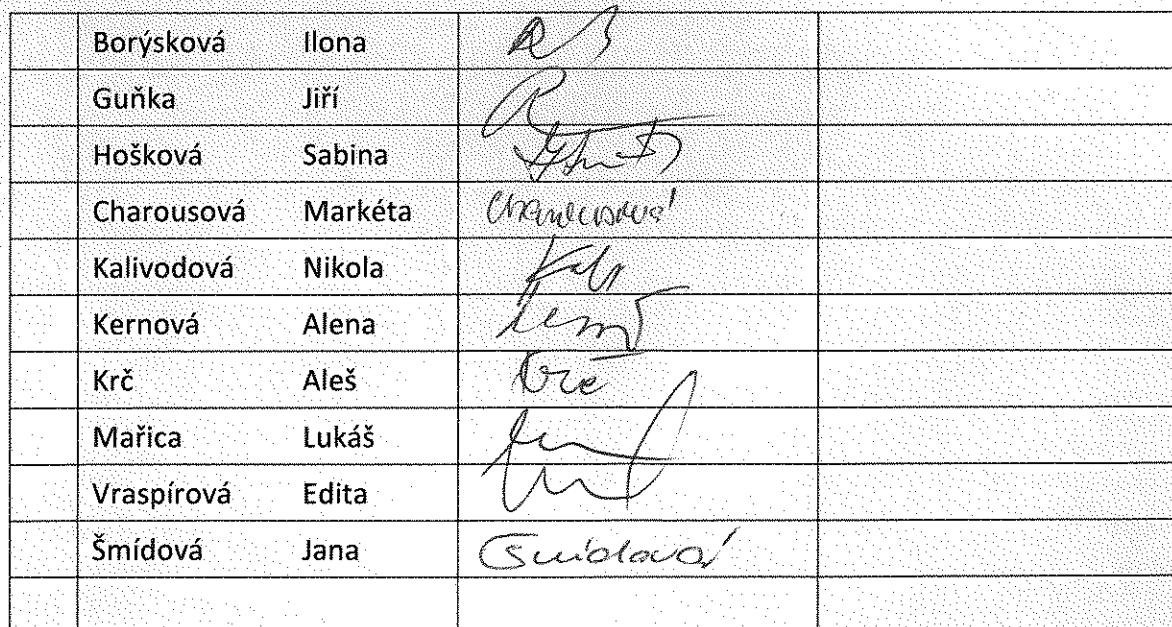 Borýsková Ilona
Guňka Jiří
Hošková Sabina
Charousová Markéta Charousová
Kalivodová Nikola
Kernová Alena
Krč Aleš Krč
Mařica Lukáš
Vraspírová Edita
Šmídová Jana Šmídová